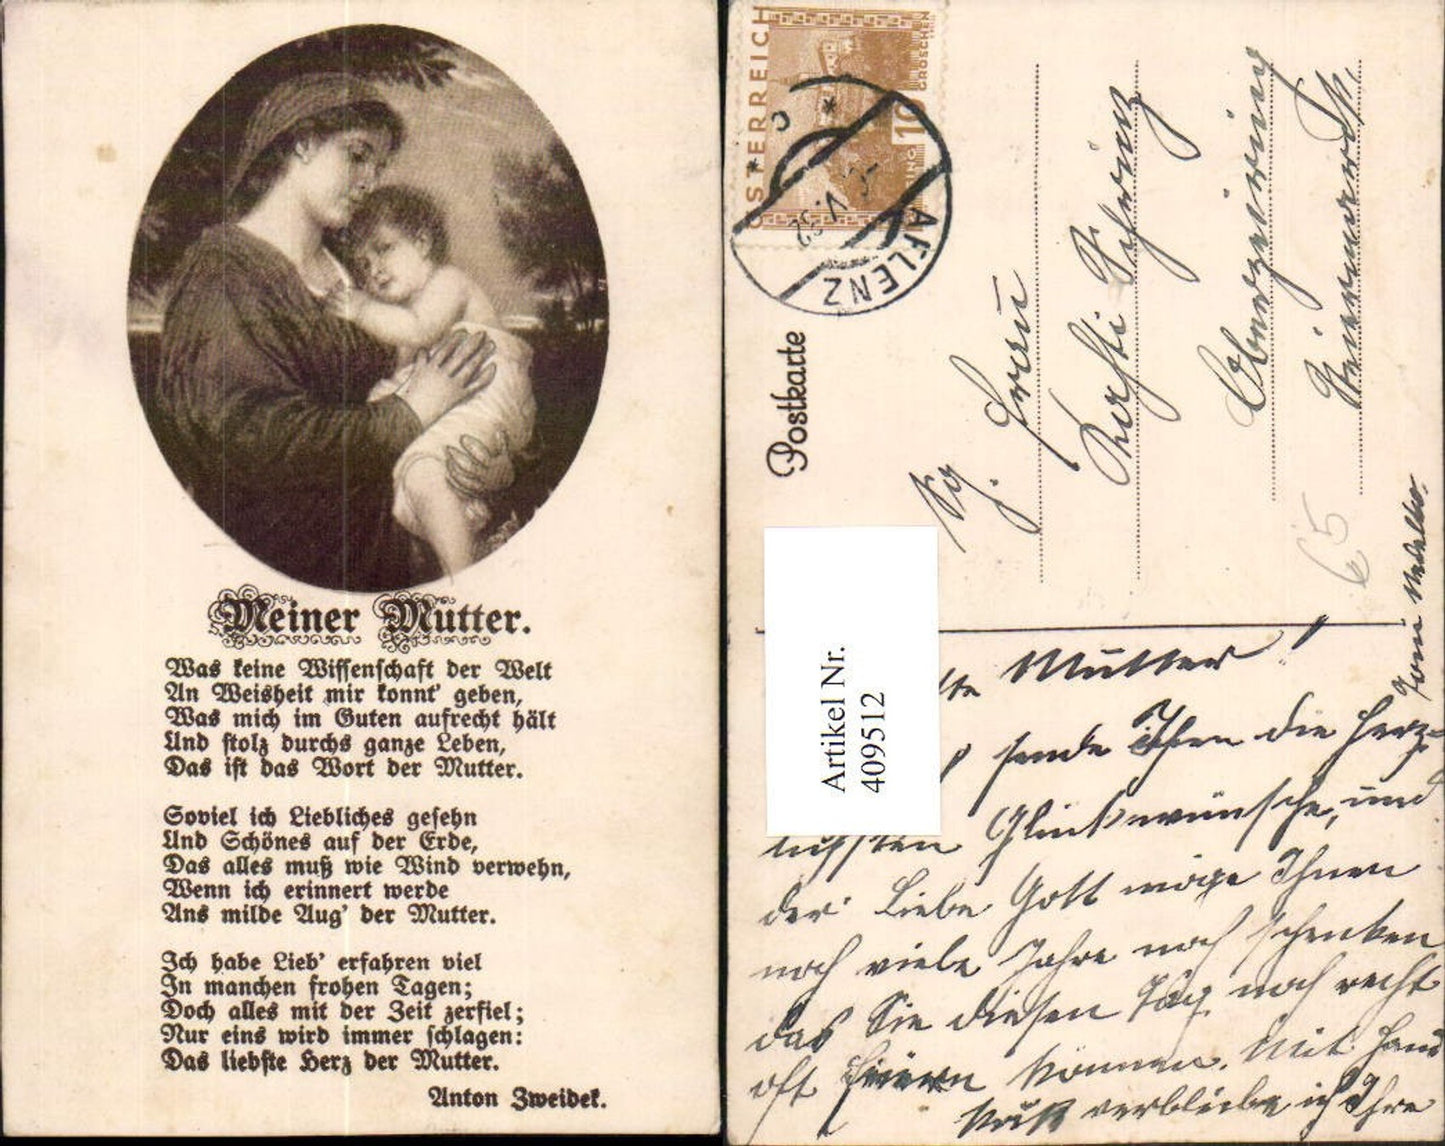 Meiner Mutter.
Was keine Wissenschaft der Welt
An Weisheit mir konnt' geben,
Was mich im Guten aufrecht hält
Und stolz durchs ganze Leben,
Das ist das Wort der Mutter.
Soviel ich Liebliches gesehn
Und Schönes auf der Erde,
Das alles muß wie Wind verwehn,
Wenn ich erinnert werde
Ans milde Aug' der Mutter.
Ich habe Lieb' erfahren viel
In manchen frohen Tagen;
Doch alles mit der Zeit zerfiel;
Nur eins wird immer schlagen:
Das liebste Herz der Mutter.
Anton Zweidek.
ÖSTERREICH
10
GROSCHEN
V. 32
AFLENZ
Postkarte
Frau
65
Artikel Nr.
409512
Mutter!
sende Ihnen die Herz-
Glückwünsche, und
der Liebe Gott möge Ihnen
noch viele Jahre noch schenken
das Sie diesen Tag noch recht
oft feiern können. Mit Hand
Kuß verbleibe ich Ihre